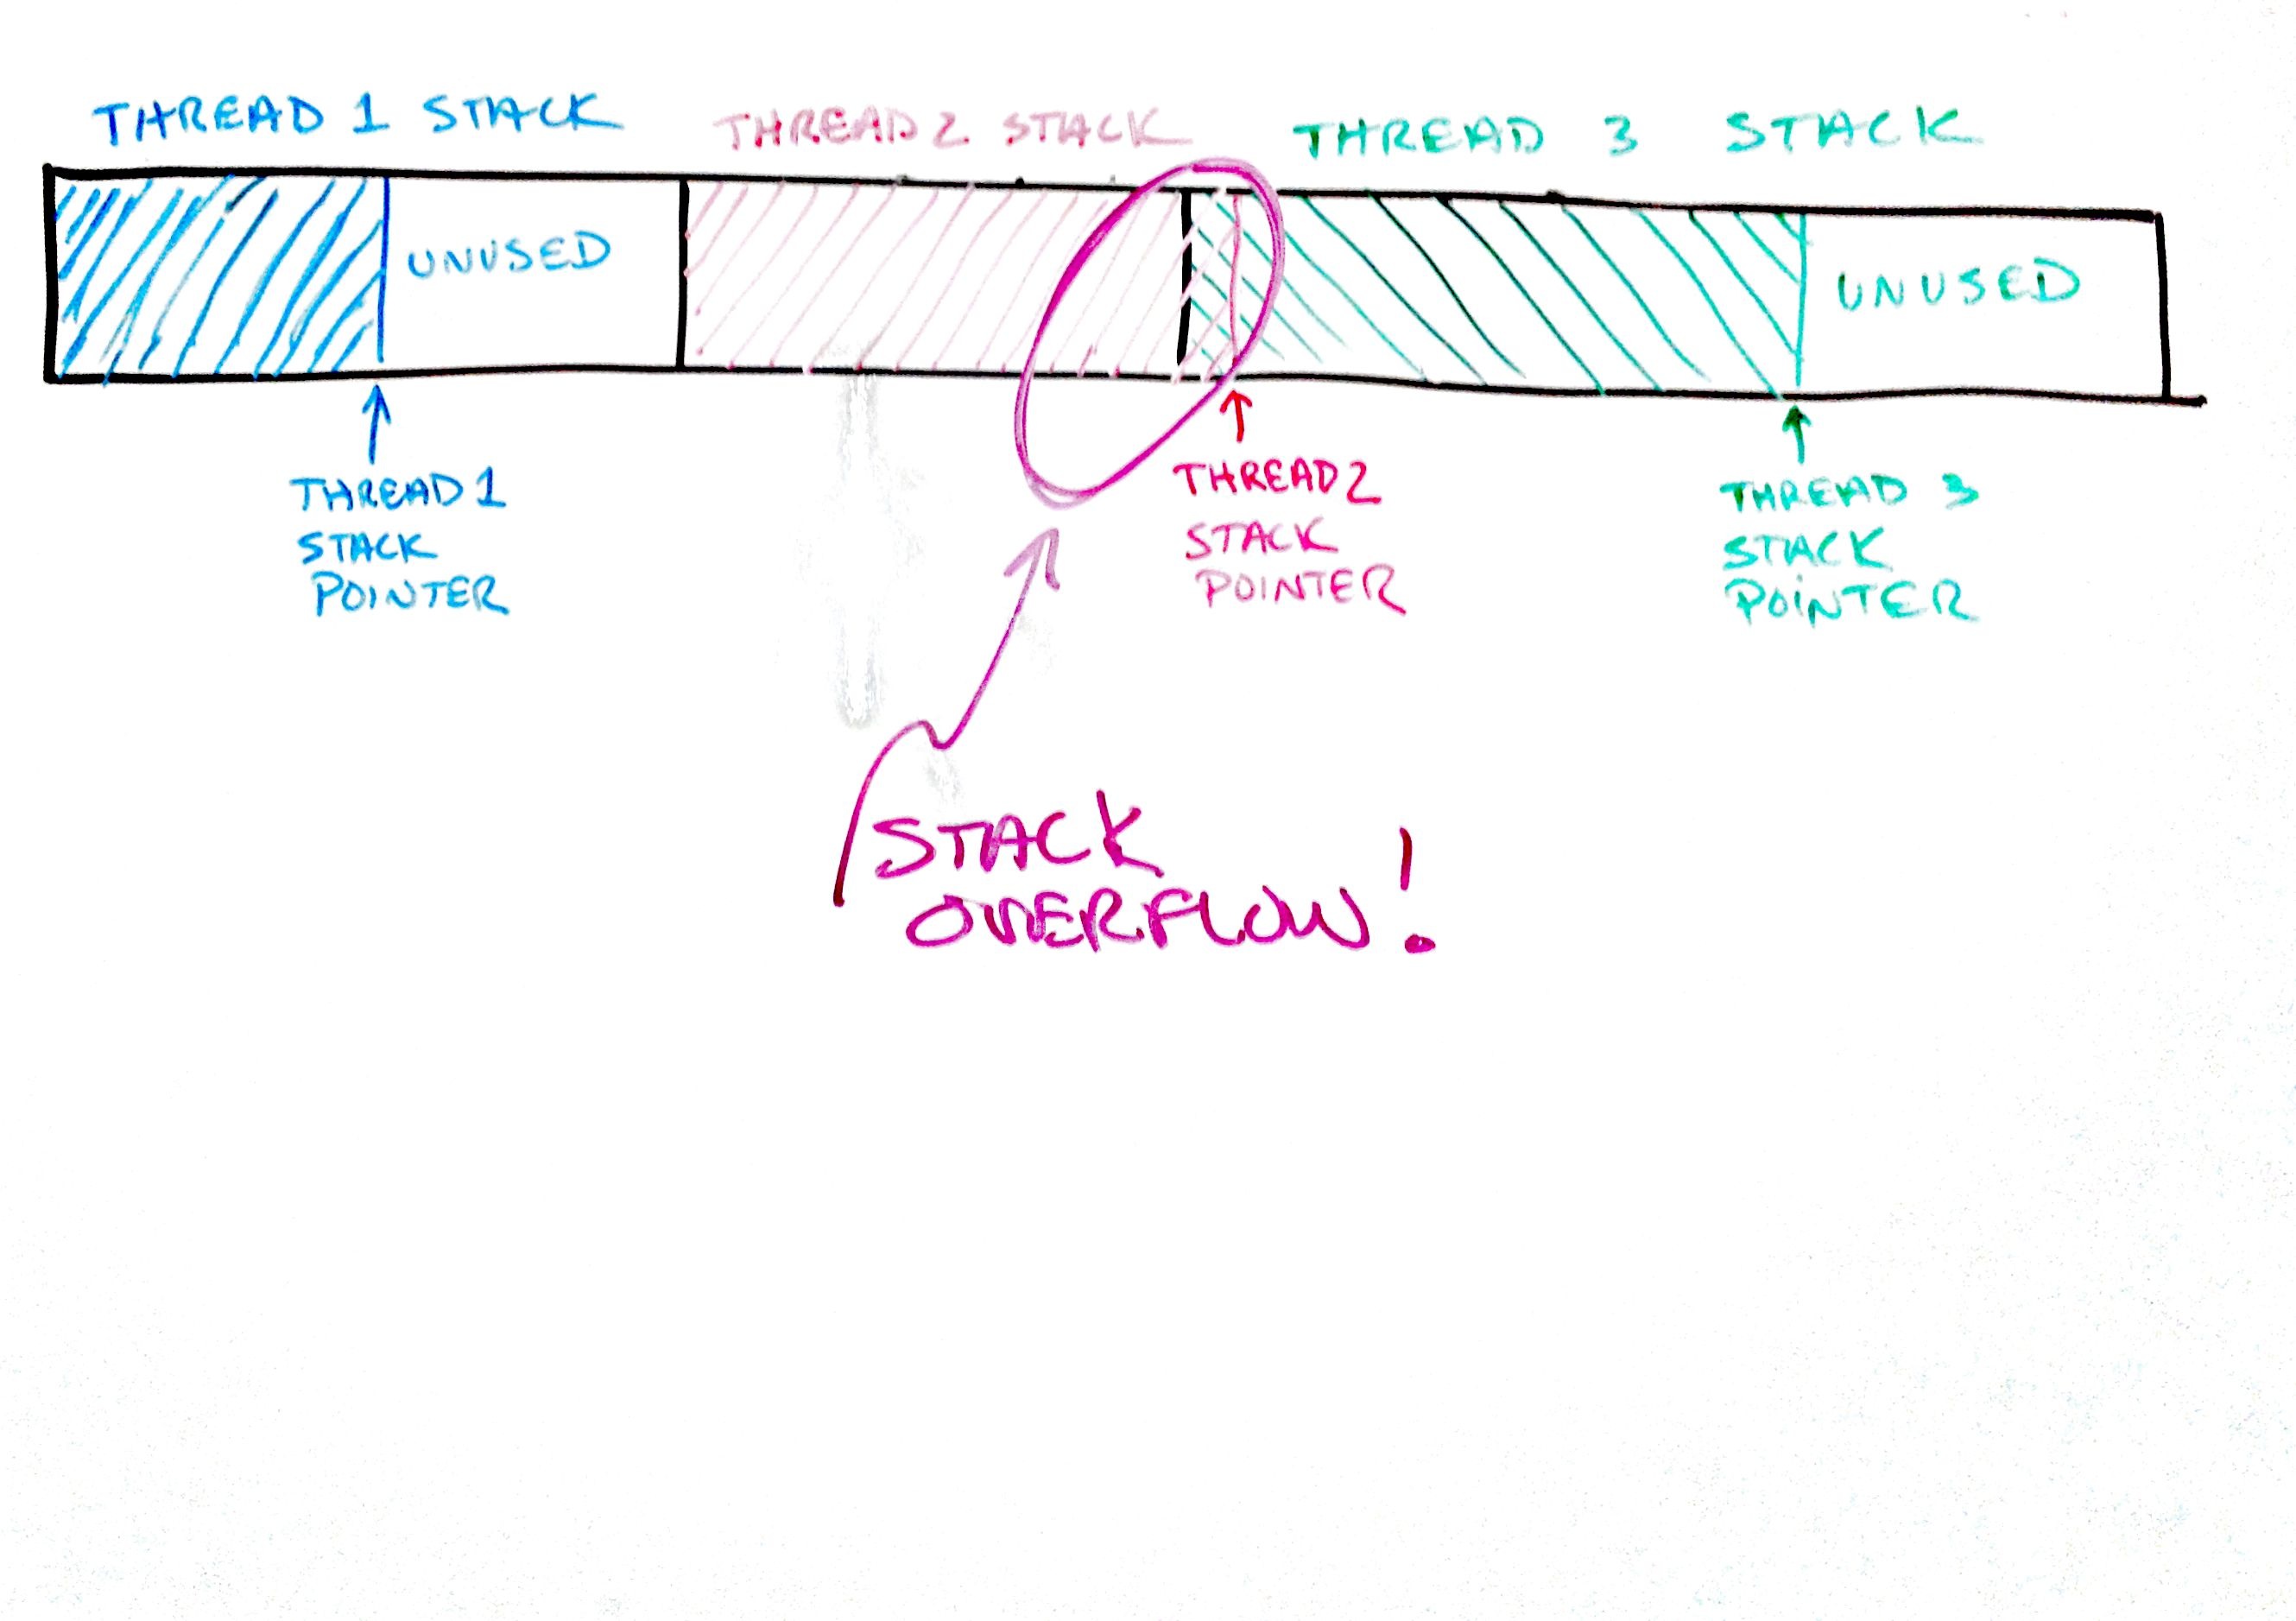 THREAD 1 STACK
THREAD 2 STACK
THREAD 3 STACK
UNUSED
UNUSED
THREAD 1
STACK
POINTER
THREAD 2
STACK
POINTER
THREAD 3
STACK
POINTER
STACK
OVERFLOW!